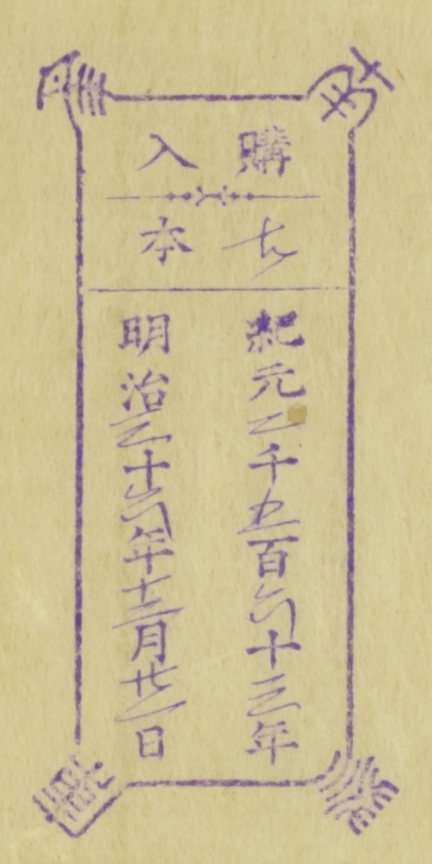 購入
本
紀元二千五百六十三年
明治三十六年十二月廿二日